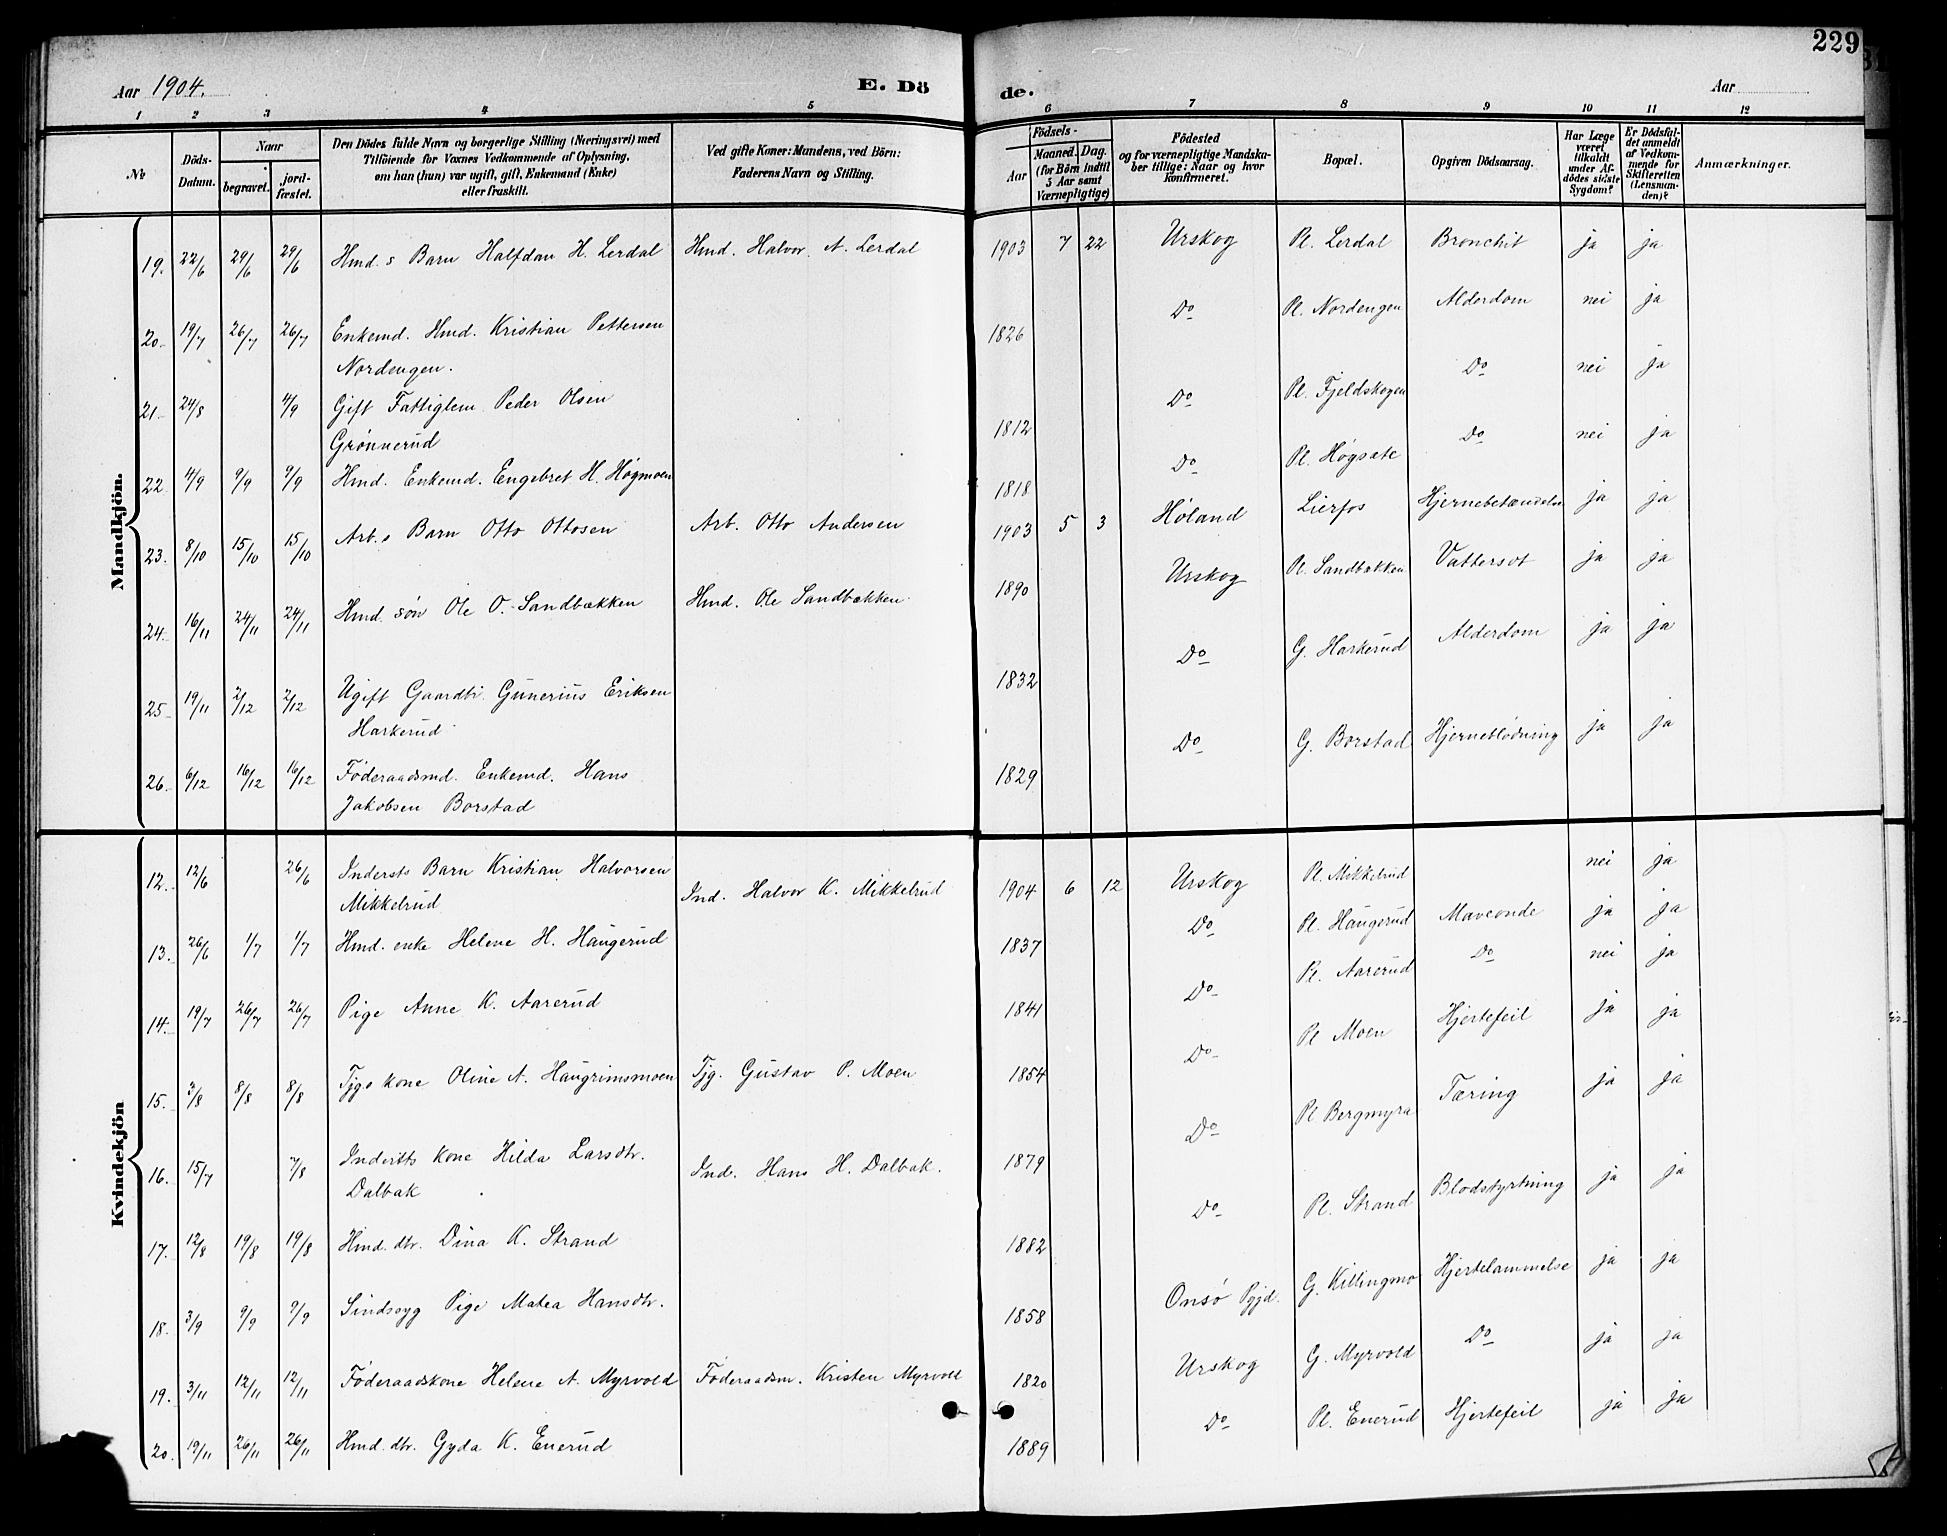 229
Aar 1904.
E. Dö
de.
Aar
1 2 3 4 5 6 7 8 9 10 11 12
No
Döds-Datum.
Naar
begravet.
jordfæstet.
Den Dödes fulde Navn og borgerlige Stilling (Næringsvei) med
Tilföiende for Voxnes Vedkommende af Oplysning,
om han (hun) var ugift, gift, Enkemand (Enke)
eller fraskilt.
Ved gifte Koner: Mandens, ved Börn:
Faderens Navn og Stilling.
Födsels-
Aar
Maaned. Dag.
(for Börn indtil
5 Aar samt
Værnepligtige)
Födested
og for værnepligtige Mandskaber tillige: Naar og hvor
konfirmeret.
Bopæl.
Opgiven Dödsaarsag.
Har Læge
været
tilkaldt
under Afdödes sidste
Sygdom?
Er Dödsfaldet anmeldt
af Vedkommende for
Skifteretten
(Lensmanden)?
Anmærkninger.
Mandkjön.
19. 22/6 29/6 29/6 Hmd.s Barn Halfdan H. Lerdal Hmd. Halvor A. Lerdal 1903 7 22 Urskog Pl. Lerdal Bronchit ja ja
20. 19/7 26/7 26/7 Enkemd. Hmd. Kristian Pettersen 1826 Do Pl. Nordengen Alderdom nei ja
Nordengen.
21. 24/8 4/9 Gift Fattiglem Peder Olsen 1812 Do Pl. Fjeldskogen Do nei ja
Grønnerud
22. 4/9 9/9 9/9 Hmd. Enkemd. Engebret H. Høgmoen 1818 Do Pl. Høgsete Do nei ja
23. 8/10 15/10 15/10 Arb.s Barn Otto Ottosen Arb. Otto Andersen 1903 5 3 Høland Lierfos Hjernebetændelse ja ja
24. 16/11 24/11 24/11 Hmd. søn Ole O. Sandbækken Hmd. Ole Sandbækken 1890 Urskog Pl. Sandbækken Vattersot ja ja
25. 19/11 2/12 2/12 Ugift Gaardbr. Gunerius Eriksen 1832 Do G. Harkerud Alderdom ja ja
Harkerud
26. 6/12 16/12 16/12 Føderaadsmd. Enkemd. Hans 1829 Do G. Borstad Hjerneblødning ja ja
Jakobsen Borstad
Kvindekjön
12. 12/6 26/6 Indersts Barn Kristian Halvorsen Ind. Halvor K. Mikkelrud 1904 6 12 Urskog Pl. Mikkelrud nei ja
Mikkelrud
13. 26/6 1/7 1/7 Hmd. enke Helene H. Haugerud 1837 Do Pl. Haugerud Maveonde ja ja
14. 19/7 26/7 26/7 Pige Anne K. Aarerud 1841 Do Pl. Aarerud Do nei ja
15. 3/8 8/8 8/8 Tjgs kone Oline A. Haugrimsmoen Tjg. Gustav P. Moen 1854 Do Pl Moen Hjertefeil ja ja
16. 15/7 7/8 Indersts kone Hilda Larsdtr. Ind. Hans H. Dalbak. 1879 Do Pl. Bergmyra Tæring ja ja
Dalbak
17. 12/8 19/8 19/8 Hmd. dtr. Dina K. Strand 1882 Do Pl. Strand Blodstyrtning ja ja
18. 3/9 9/9 9/9 Sindssyg Pige Matea Hansdtr. 1858 Onsø Pgjd. G. Killingmo Hjertelammelse ja ja
19. 3/11 12/11 12/11 Føderaadskone Helene A. Myrvold Føderaadsm. Kristen Myrvold 1820 Urskog G. Myrvold Do ja ja
20. 19/11 26/11 26/11 Hmd. dtr. Gyda K. Enerud 1889 Do Pl. Enerud Hjertefeil ja ja